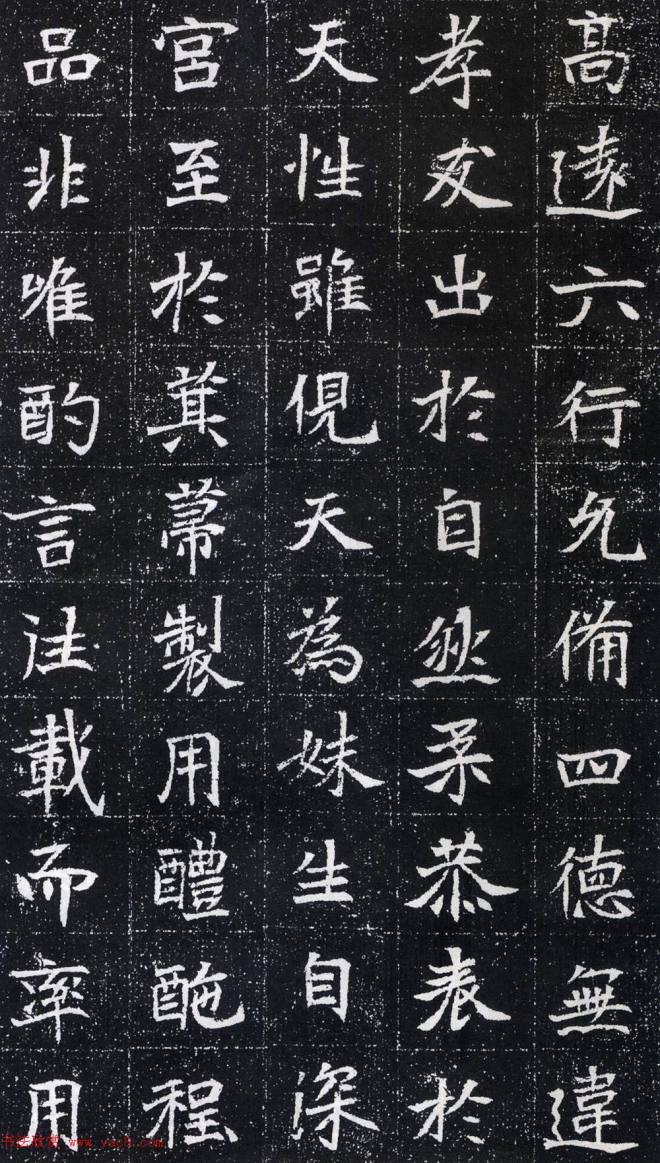 高遠六行允備四德無違
孝友出於自然柔恭表於
天性雖俔天為妹生自深
宮至於箕蒂製用醴酏程
品非唯酌言注載而率用
书法欣赏 www.yac8.com